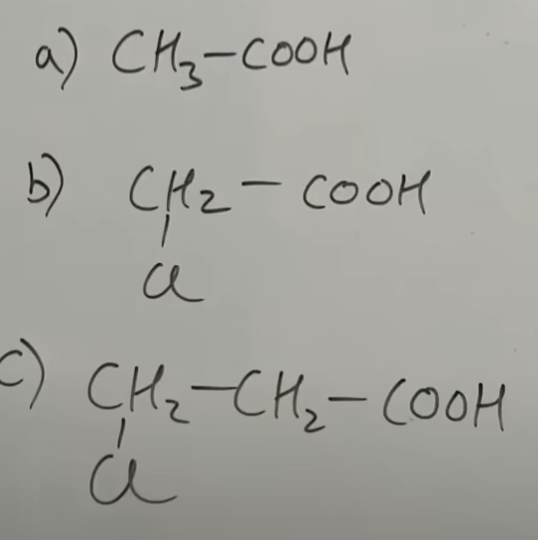 a) CH₃-COOH
b) CH₂ - COOH
|
Cl
c) CH₂-CH₂-COOH
|
Cl